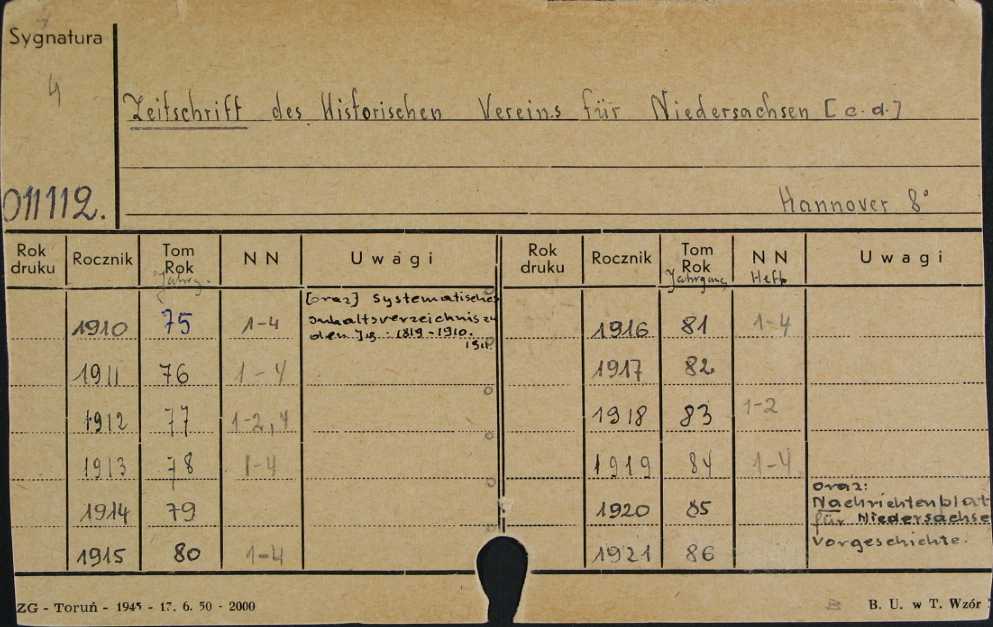 Sygnatura
4
011112.
Zeitschrift des Historischen Vereins für Niedersachsen [c.d.]
Hannover 8°
Rok druku | Rocznik | Tom Rok Jahrg. | NN | Uwagi | Rok druku | Rocznik | Tom Rok Jahrgang | NN Heft | Uwagi
1910 | 75 | 1-4 | [oraz] Systematisches | 1916 | 81 | 1-4
Inhaltsverzeichnis zu
den Jg : 1819-1910.
1911 | 76 | 1-4 | 1917 | 82
1912 | 77 | 1-2,4 | 1918 | 83 | 1-2
1913 | 78 | 1-4 | 1919 | 84 | 1-4
1914 | 79 | 1920 | 85 | oraz:
Nachrichtenblat
für Niedersachse
1915 | 80 | 1-4 | 1921 | 86 | Vorgeschichte.
ZG - Toruń - 1945 - 17. 6. 50 - 2000
B. U. w T. Wzór